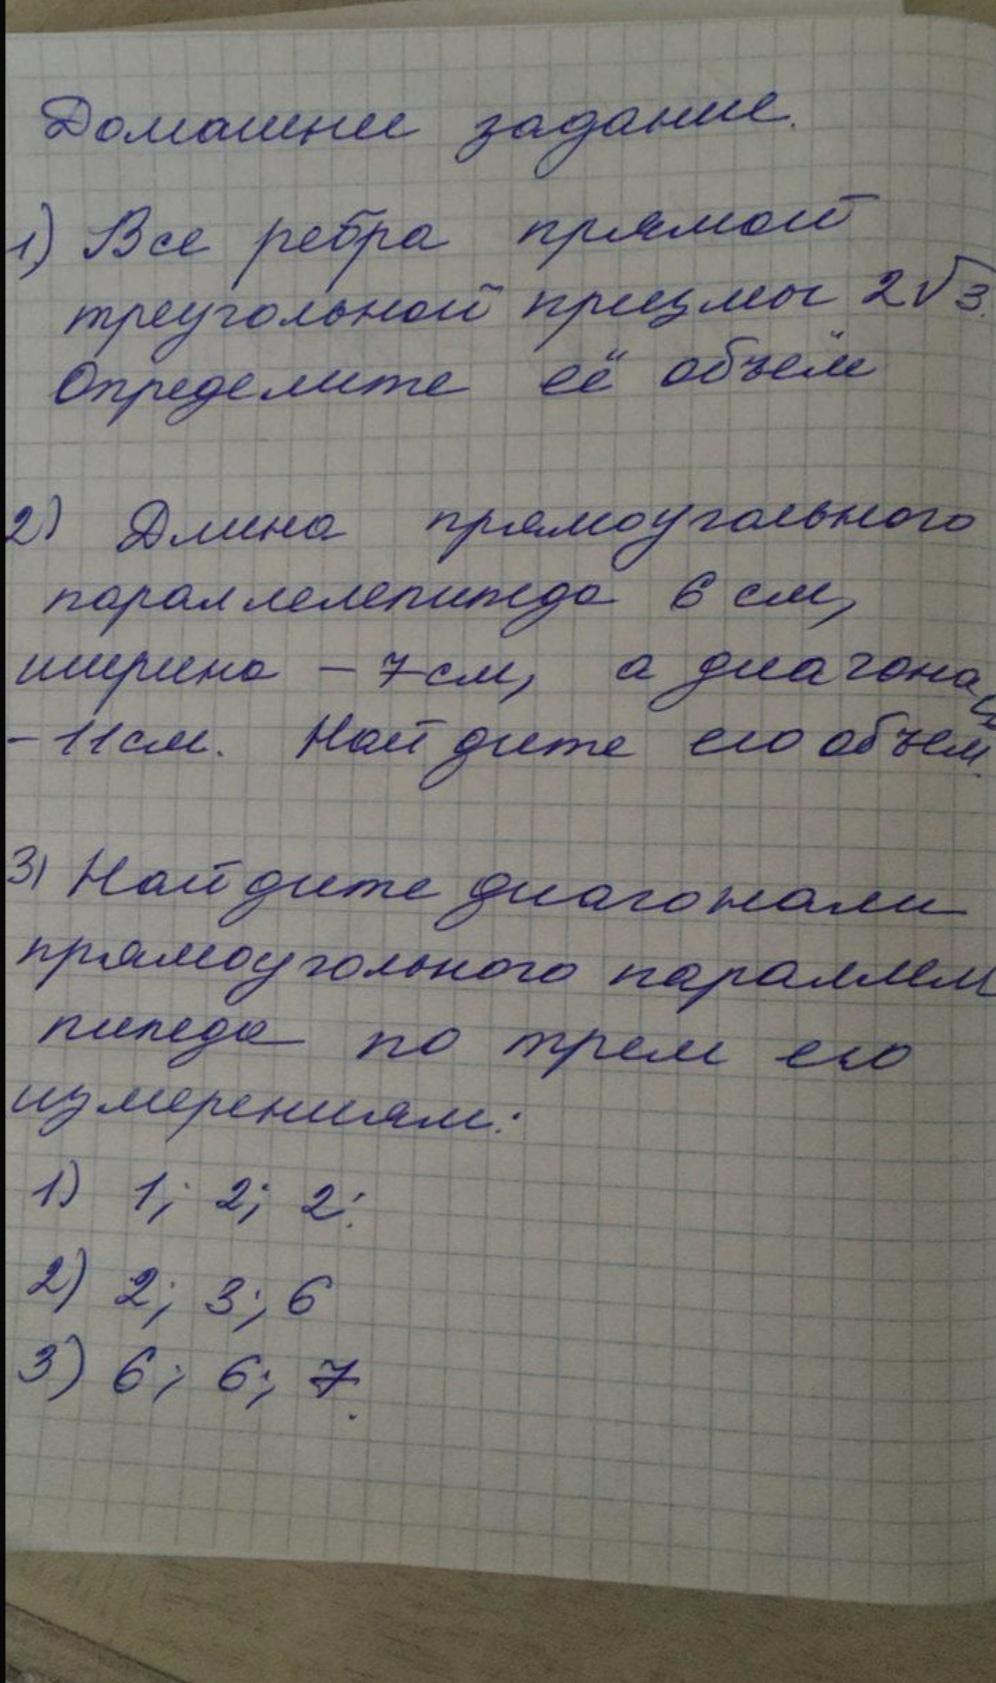 Домашнее задание.
1) Все ребра прямой
треугольной призмы 2√3.
Определите её объём
2) Длина прямоугольного
параллелепипеда 6 см,
ширина – 7 см, а диагональ
– 11 см. Найдите его объем.
3) Найдите диагонали
прямоугольного параллеле
пипеда по трем его
измерениям:
1) 1; 2; 2:
2) 2; 3; 6
3) 6; 6; 7.